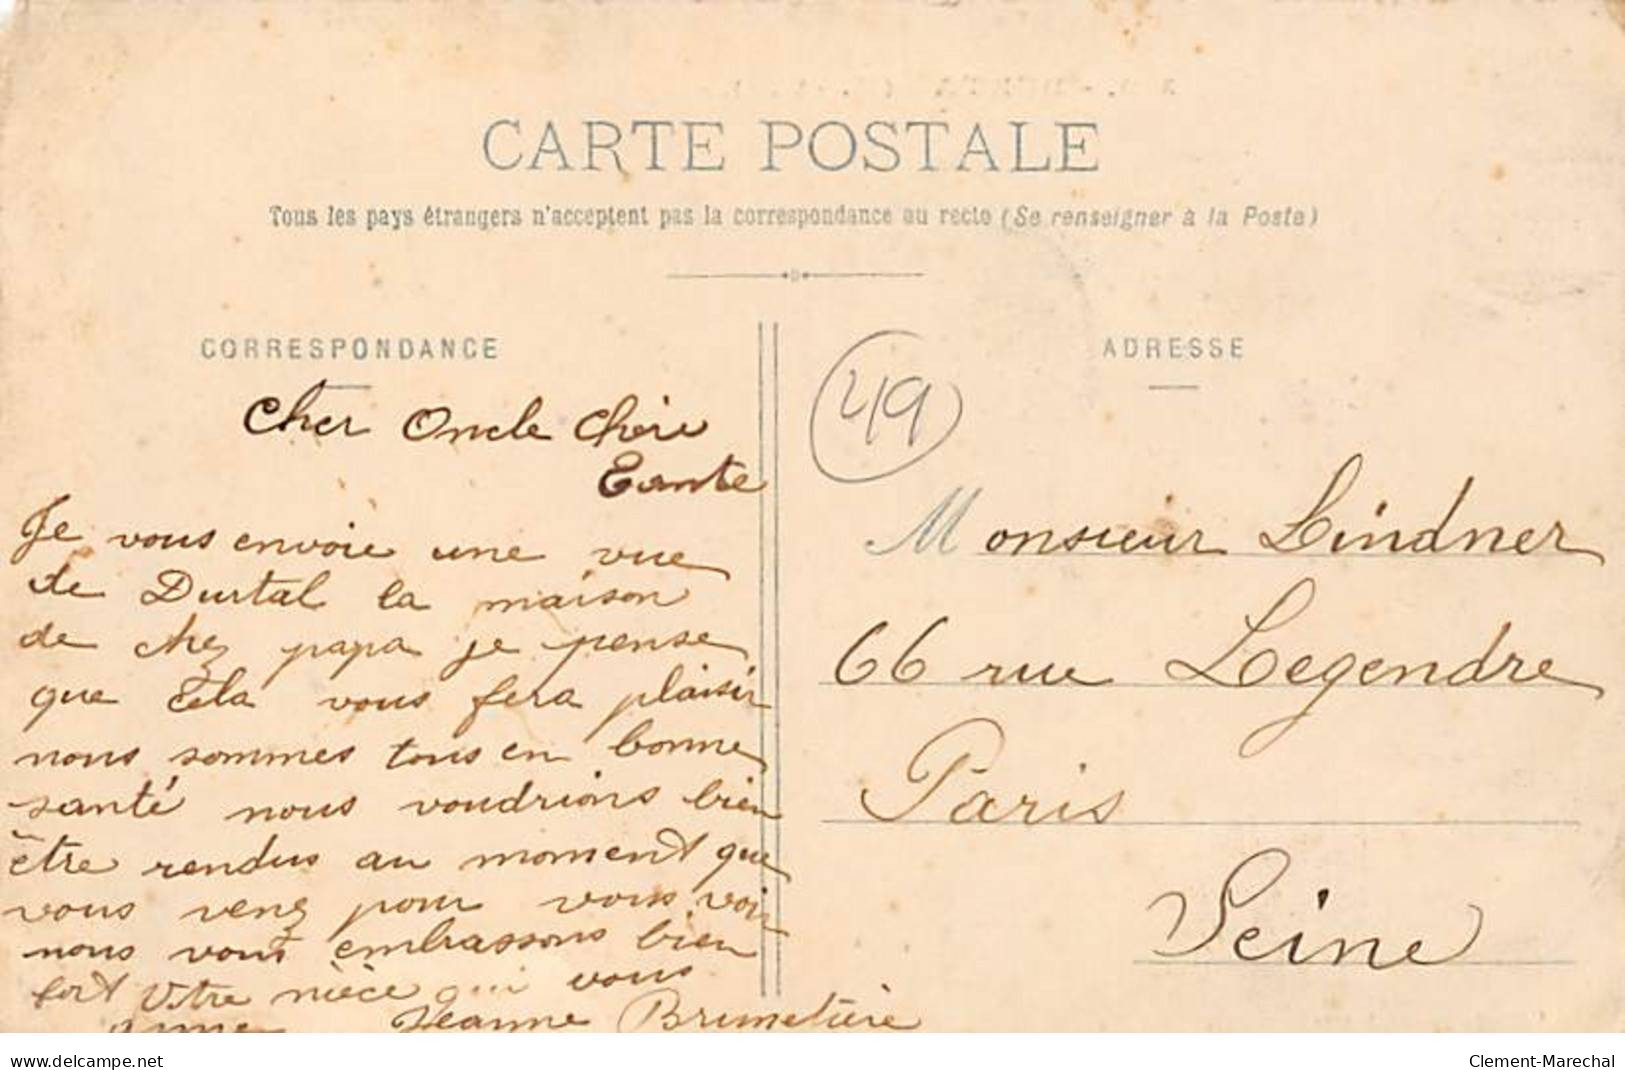 CARTE POSTALE
Tous les pays étrangers n'acceptent pas la correspondance au recto (Se renseigner à la Poste)
CORRESPONDANCE
Cher Oncle Chère
Tante
Je vous envoie une vue
de Durtal la maison
de chez papa je pense
que Cela vous fera plaisir
nous sommes tous en bonne
santé nous voudrions bien
être rendus au moment que
vous venez pour vous voir
nous vous embrassons bien
fort Votre nièce qui vous
aime Jeanne Brunetière
49
ADRESSE
Monsieur Lindner
66 rue Legendre
Paris
Seine
www.delcampe.net
Clement-Marechal